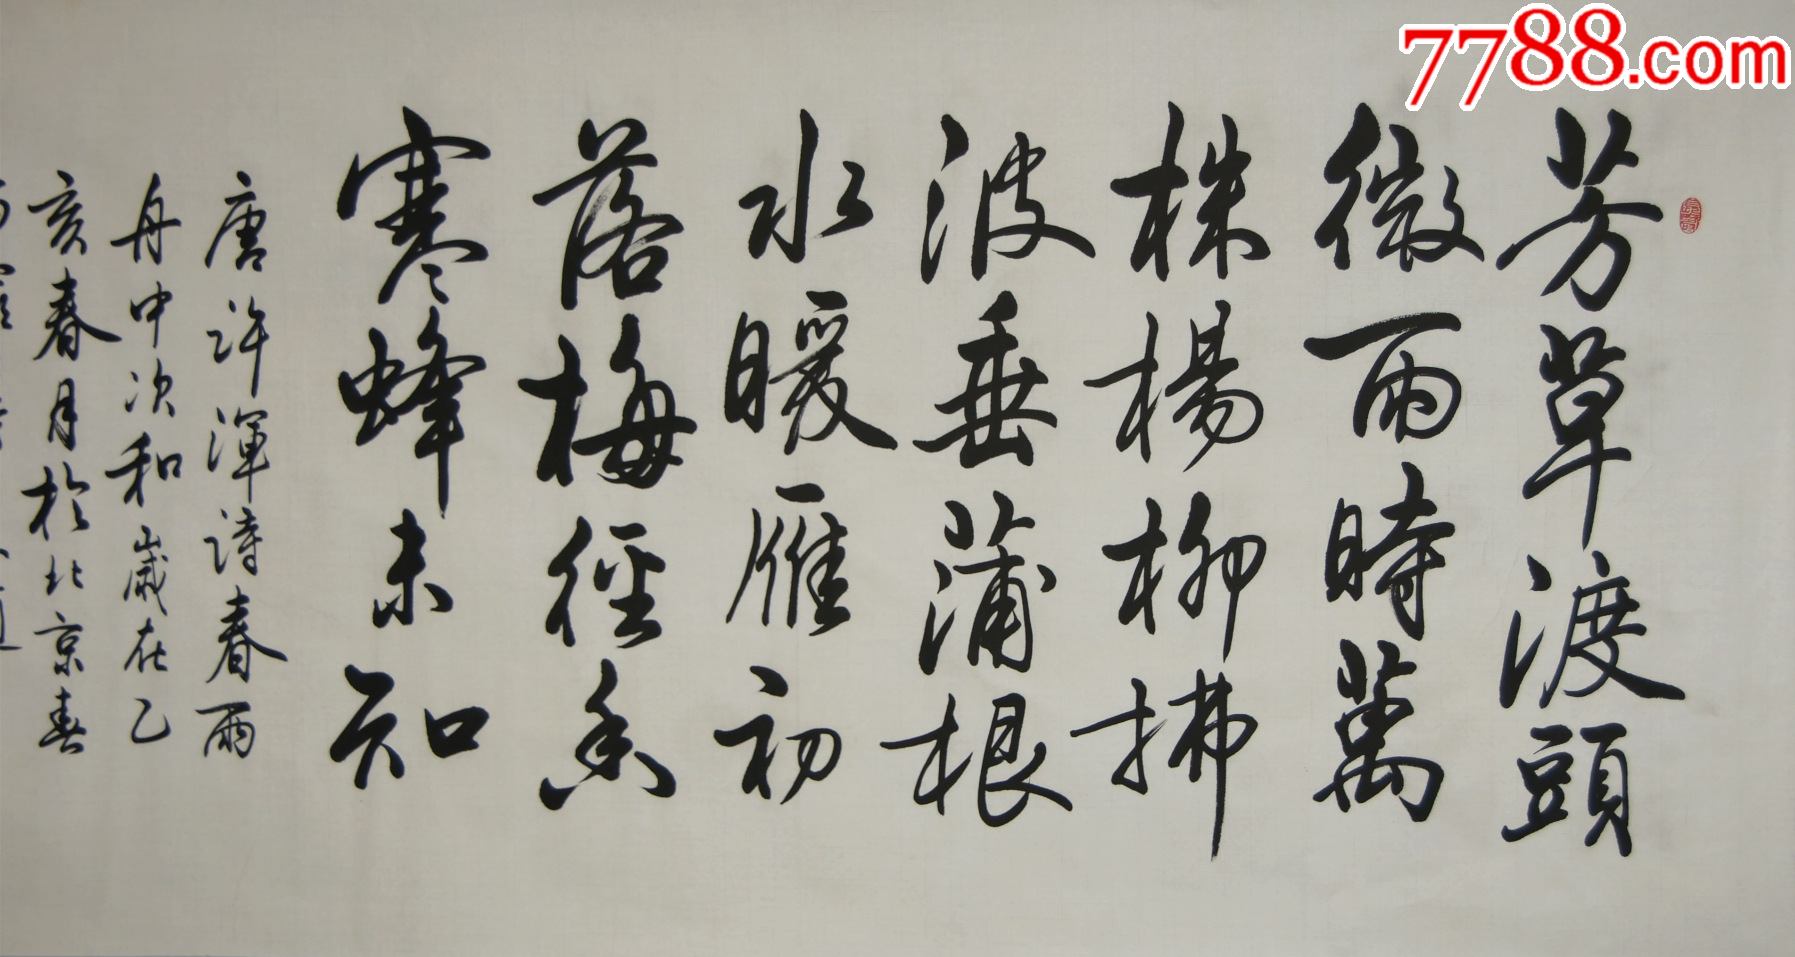 7788.com
芳草渡頭
微雨時萬
株楊柳拂
波垂蒲根
水暖雁初
落梅徑香
寒蜂未知
唐許渾詩春雨
舟中次和歲在乙
亥春月於北京春